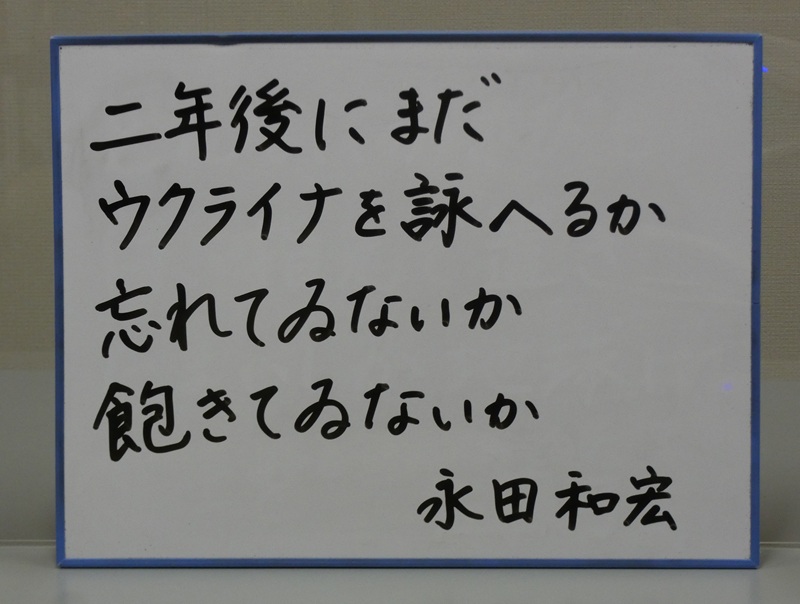 二年後にまだ
ウクライナを詠へるか
忘れてゐないか
飽きてゐないか
永田和宏